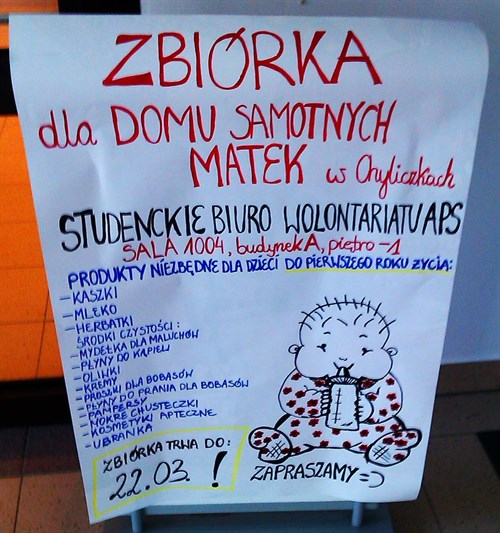 ZBIÓRKA
dla DOMU SAMOTNYCH
MATEK w Chyliczkach
STUDENCKIE BIURO WOLONTARIATU APS
SALA 1004, budynek A, piętro -1
PRODUKTY NIEZBĘDNE DLA DZIECI DO PIERWSZEGO ROKU ŻYCIA:
- KASZKI
- MLEKO
- HERBATKI
ŚRODKI CZYSTOŚCI:
- MYDEŁKA DLA MALUCHÓW
- PŁYNY DO KĄPIELI
- OLIWKI
- KREMY
- PROSZKI DLA BOBASÓW
- PŁYNY DO PRANIA DLA BOBASÓW
- PAMPERSY
- MOKRE CHUSTECZKI
- KOSMETYKI APTECZNE
- UBRANKA
ZBIÓRKA TRWA DO:
22.03. !
ZAPRASZAMY =)